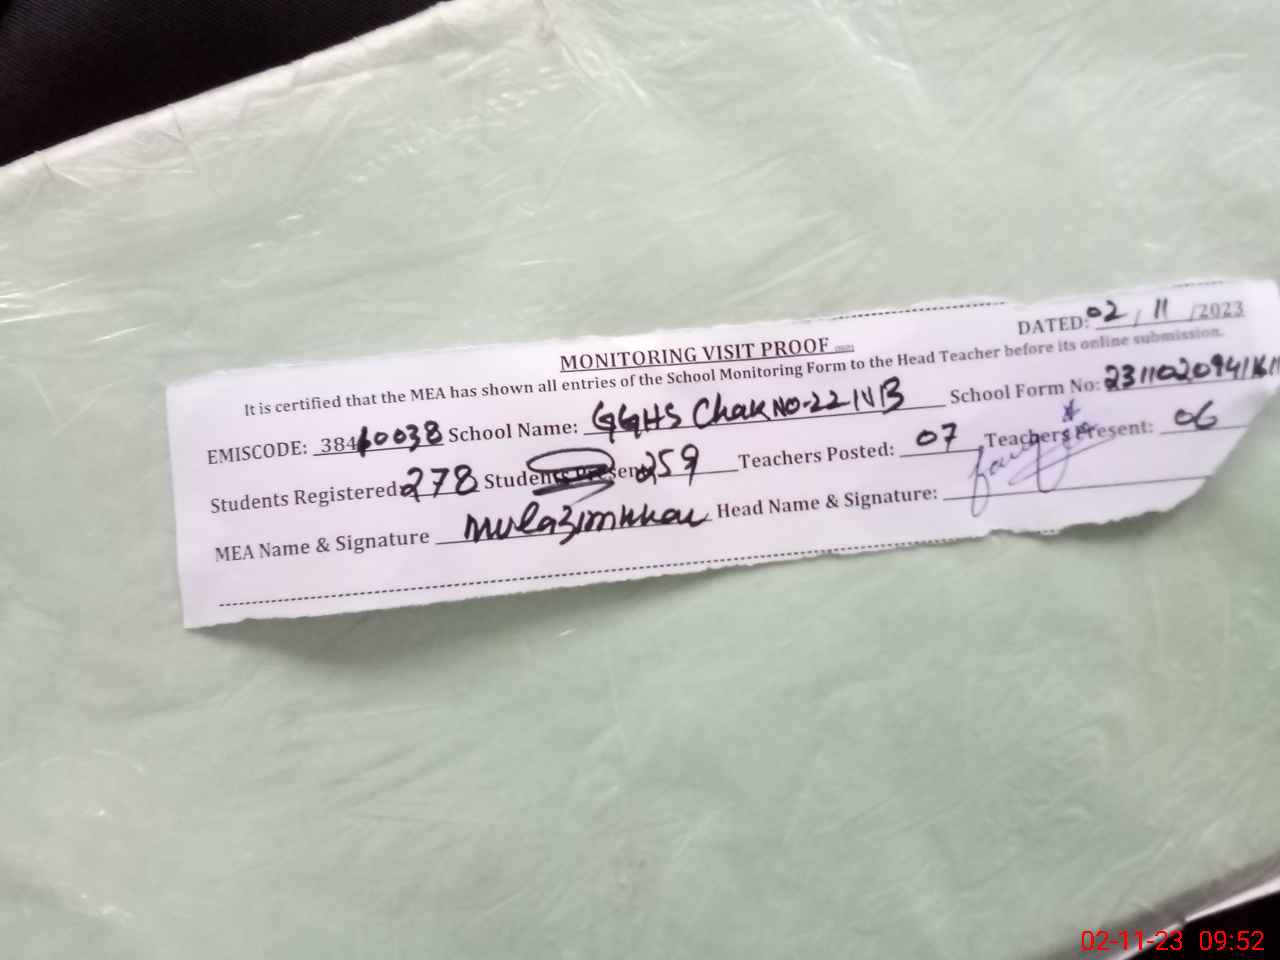 DATED: 02 / 11 /2023
MONITORING VISIT PROOF
It is certified that the MEA has shown all entries of the School Monitoring Form to the Head Teacher before its online submission.
EMISCODE: 38410038 School Name: GGHS Chak NO-22 NB School Form No: 2311020941
Students Registered 278 Students Present 259 Teachers Posted: 07 Teachers Present: 06
MEA Name & Signature Mulazim Head Name & Signature:
02-11-23 09:52